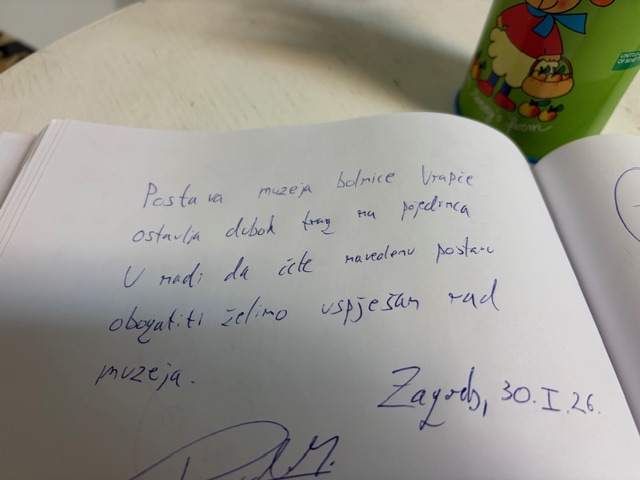 Postava muzeja bolnice Vrapče
ostavlja dubok trag na pojedinca
U nadi da ćete navedenu postavu
obogatiti želimo uspješan rad
muzeja.
Zagreb, 30.I.26.
UNITED
OF BENE
farm